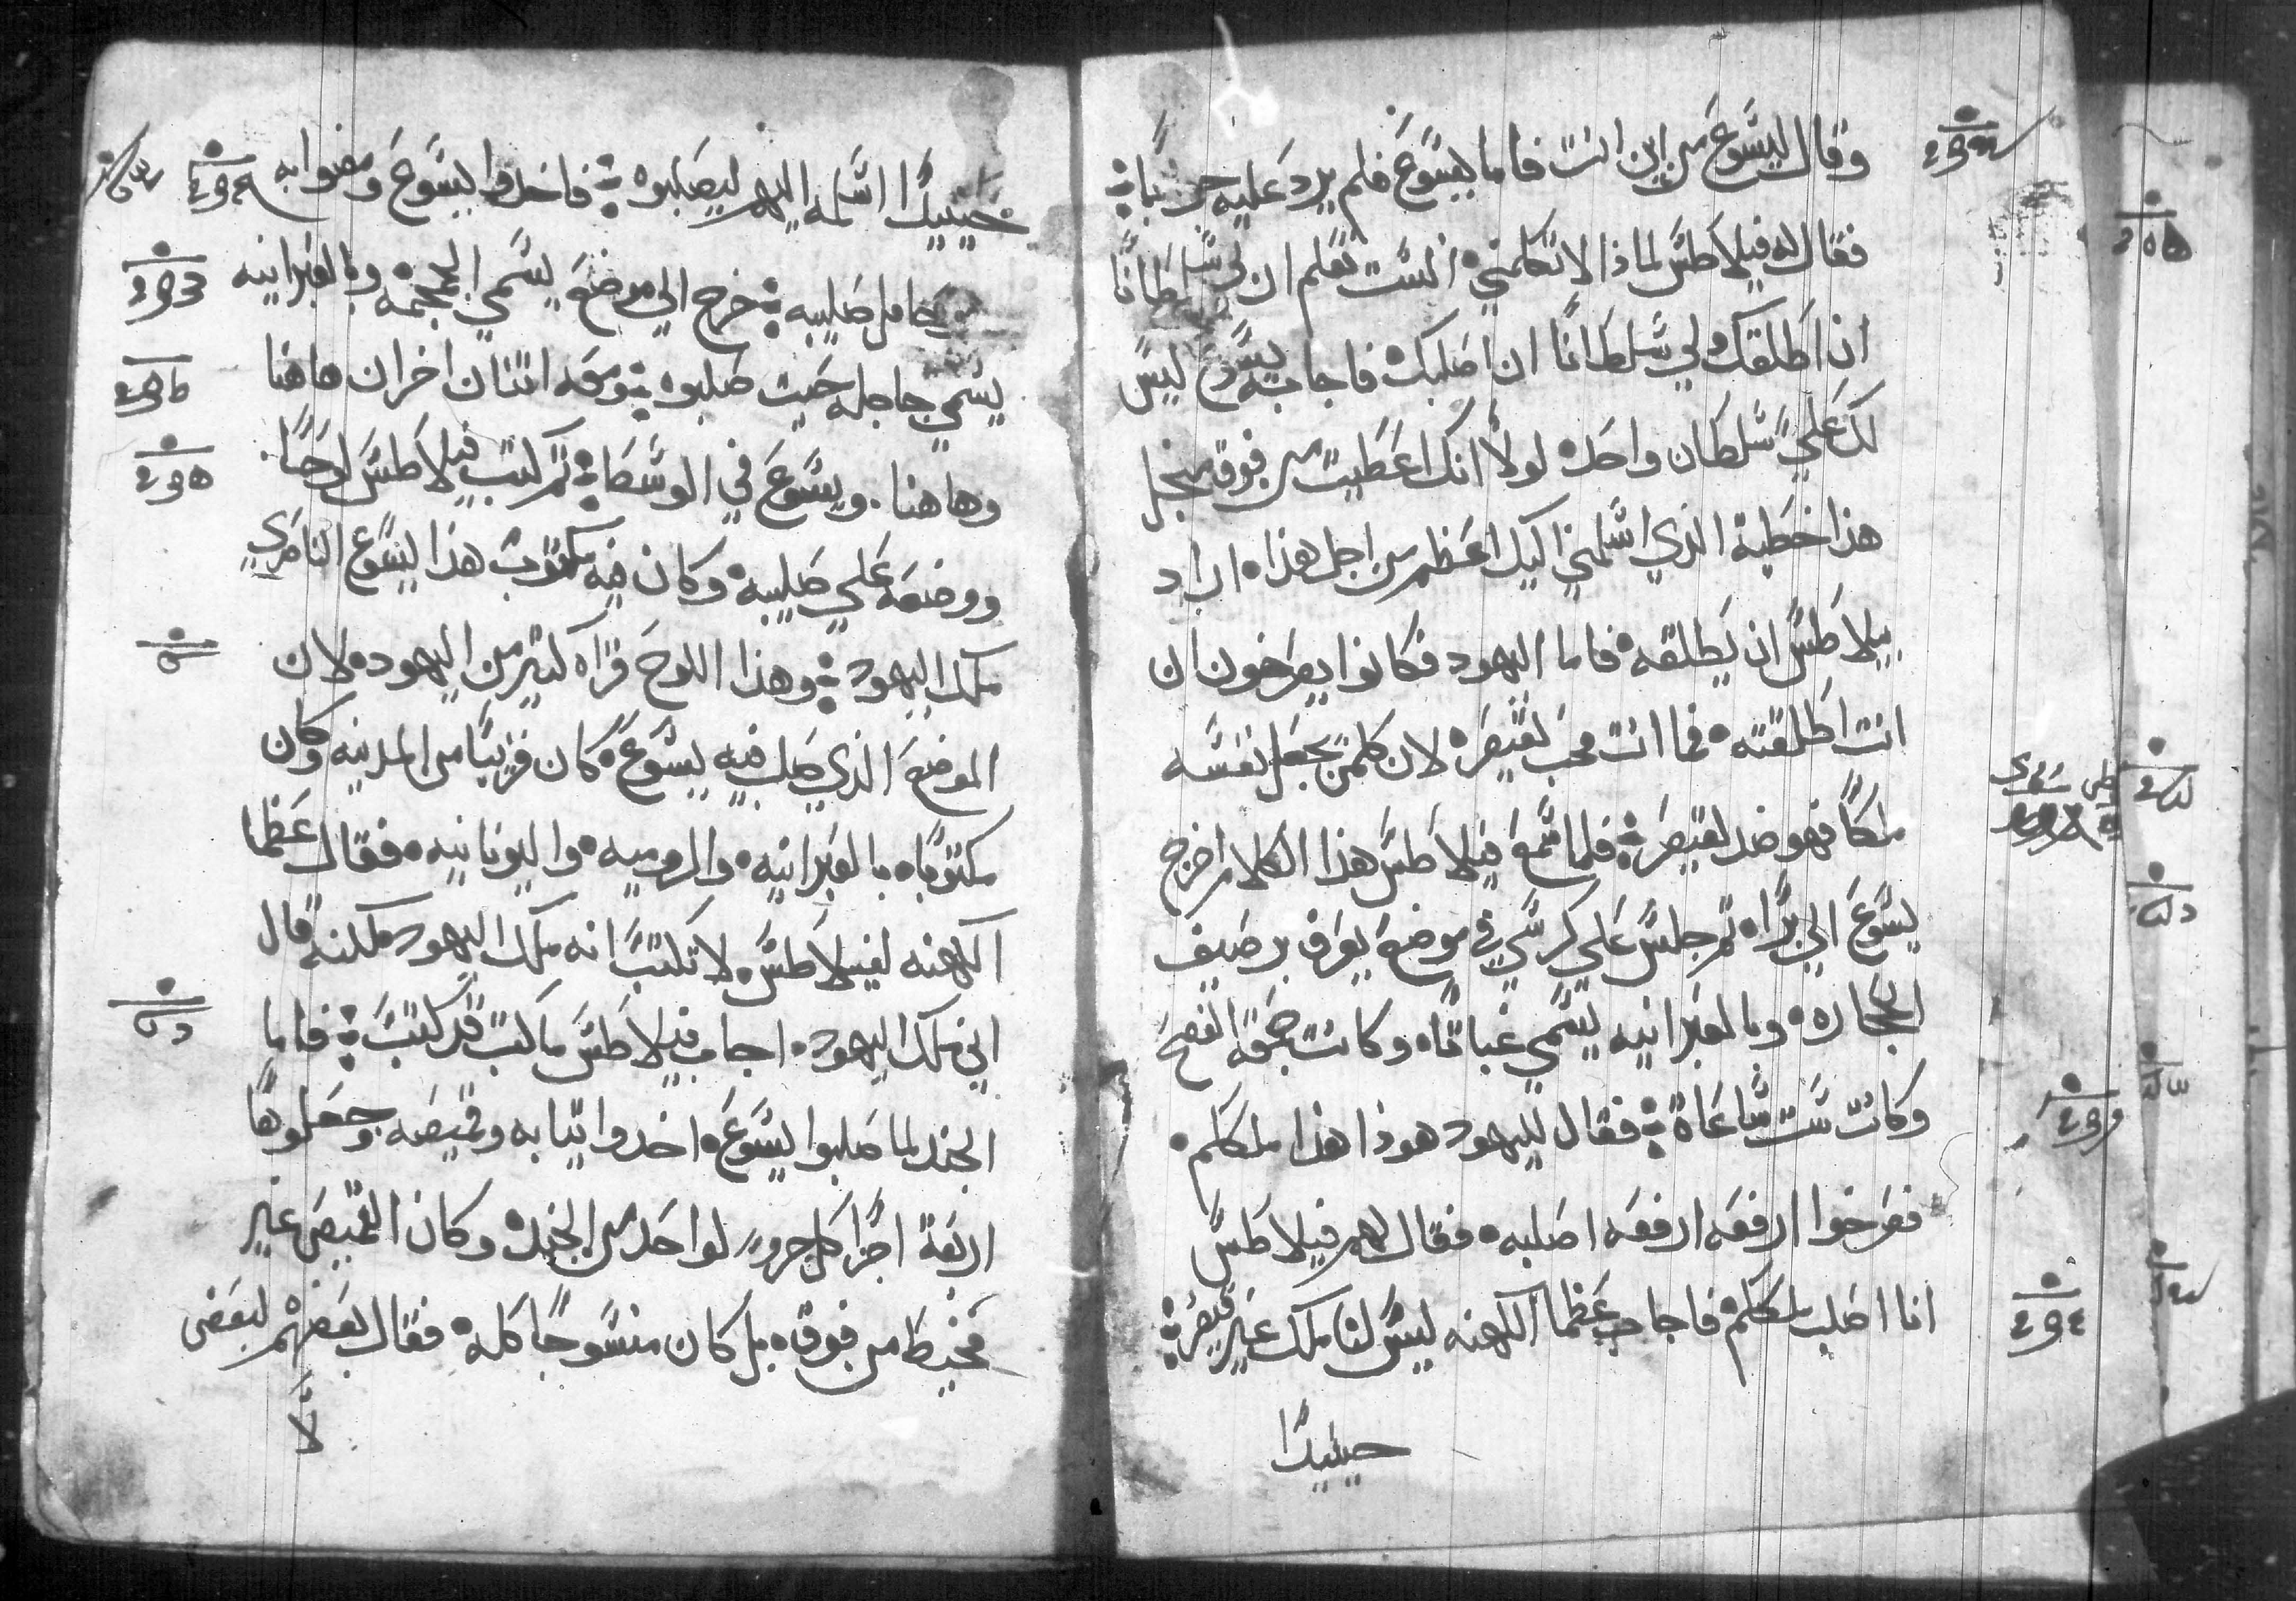 وقال ليسوع من اين انت فاما يسوع فلم يرد عليه جوابا
فقال له فيلاطس لماذا لا تكلمني الست تعلم ان لي سلطانا
ان اطلقك ولي سلطانا ان اصلبك فاجابه يسوع ليس
لك علي سلطان واحد لولا انك اعطيت من فوق من اجل
هذا خطية الذي اسلمني اليك اعظم من اجل هذا اراد
بيلاطس ان يطلقه فاما اليهود فكانوا يصرخون ان
انت اطلقته فما انت محب لقيصر لان كلمن يجعل نفسه
ملكا فهو ضد لقيصر فلما سمع فيلاطس هذا الكلام اخرج
يسوع الي برا ثم جلس علي كرسي في موضع يعرف برصيف
الحجاره وبالعبرانيه يسمي غباتا وكانت جمعة الفصح
وكانت ست ساعاة فقال لليهود هوذا هذا ملككم
فصرخوا ارفعه ارفعه اصلبه فقال لهم فيلاطس
انا اصلب ملككم فاجاب عظما الكهنه ليس لنا ملك غير قيصر
حينيدا
حينيدا اسلمه اليهم ليصلبوه فاخدوا ليسوع ومضوا به
حامل صليبه خرج الي موضع يسمي الجمجمه وبالعبرانيه
يسمي جاجله حيت صلبوه ومعه اتنان اخران هاهنا
وهاهنا ويسوع في الوسط ثم كتب فيلاطس لوحا
ووضعه علي صليبه وكان فيه مكتوب هذا يسوع الناصري
ملك اليهود وهذا اللوح قراه كتير من اليهود لان
الموضع الذي صلب فيه يسوع كان قريبا من المدينه وكان
مكتوبا بالعبرانيه والروميه واليونانيه فقال عظما
الكهنه لفيلاطس لا تكتب انه ملك اليهود لكنه قال
اني ملك اليهود اجاب فيلاطس ما كتب قد كتب فاما
الجند لما صلبوا يسوع اخدوا تيابه وقميصه وجعلوها
اربعة اجزا كل جزو لواحد من الجند وكان القميص غير
مخيط من فوق بل كان منسوجا كله فقال بعضهم لبعض
لا